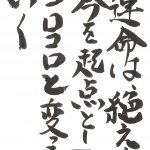 運命は、絶え
今を起点とし
コロコロと変っ
いく